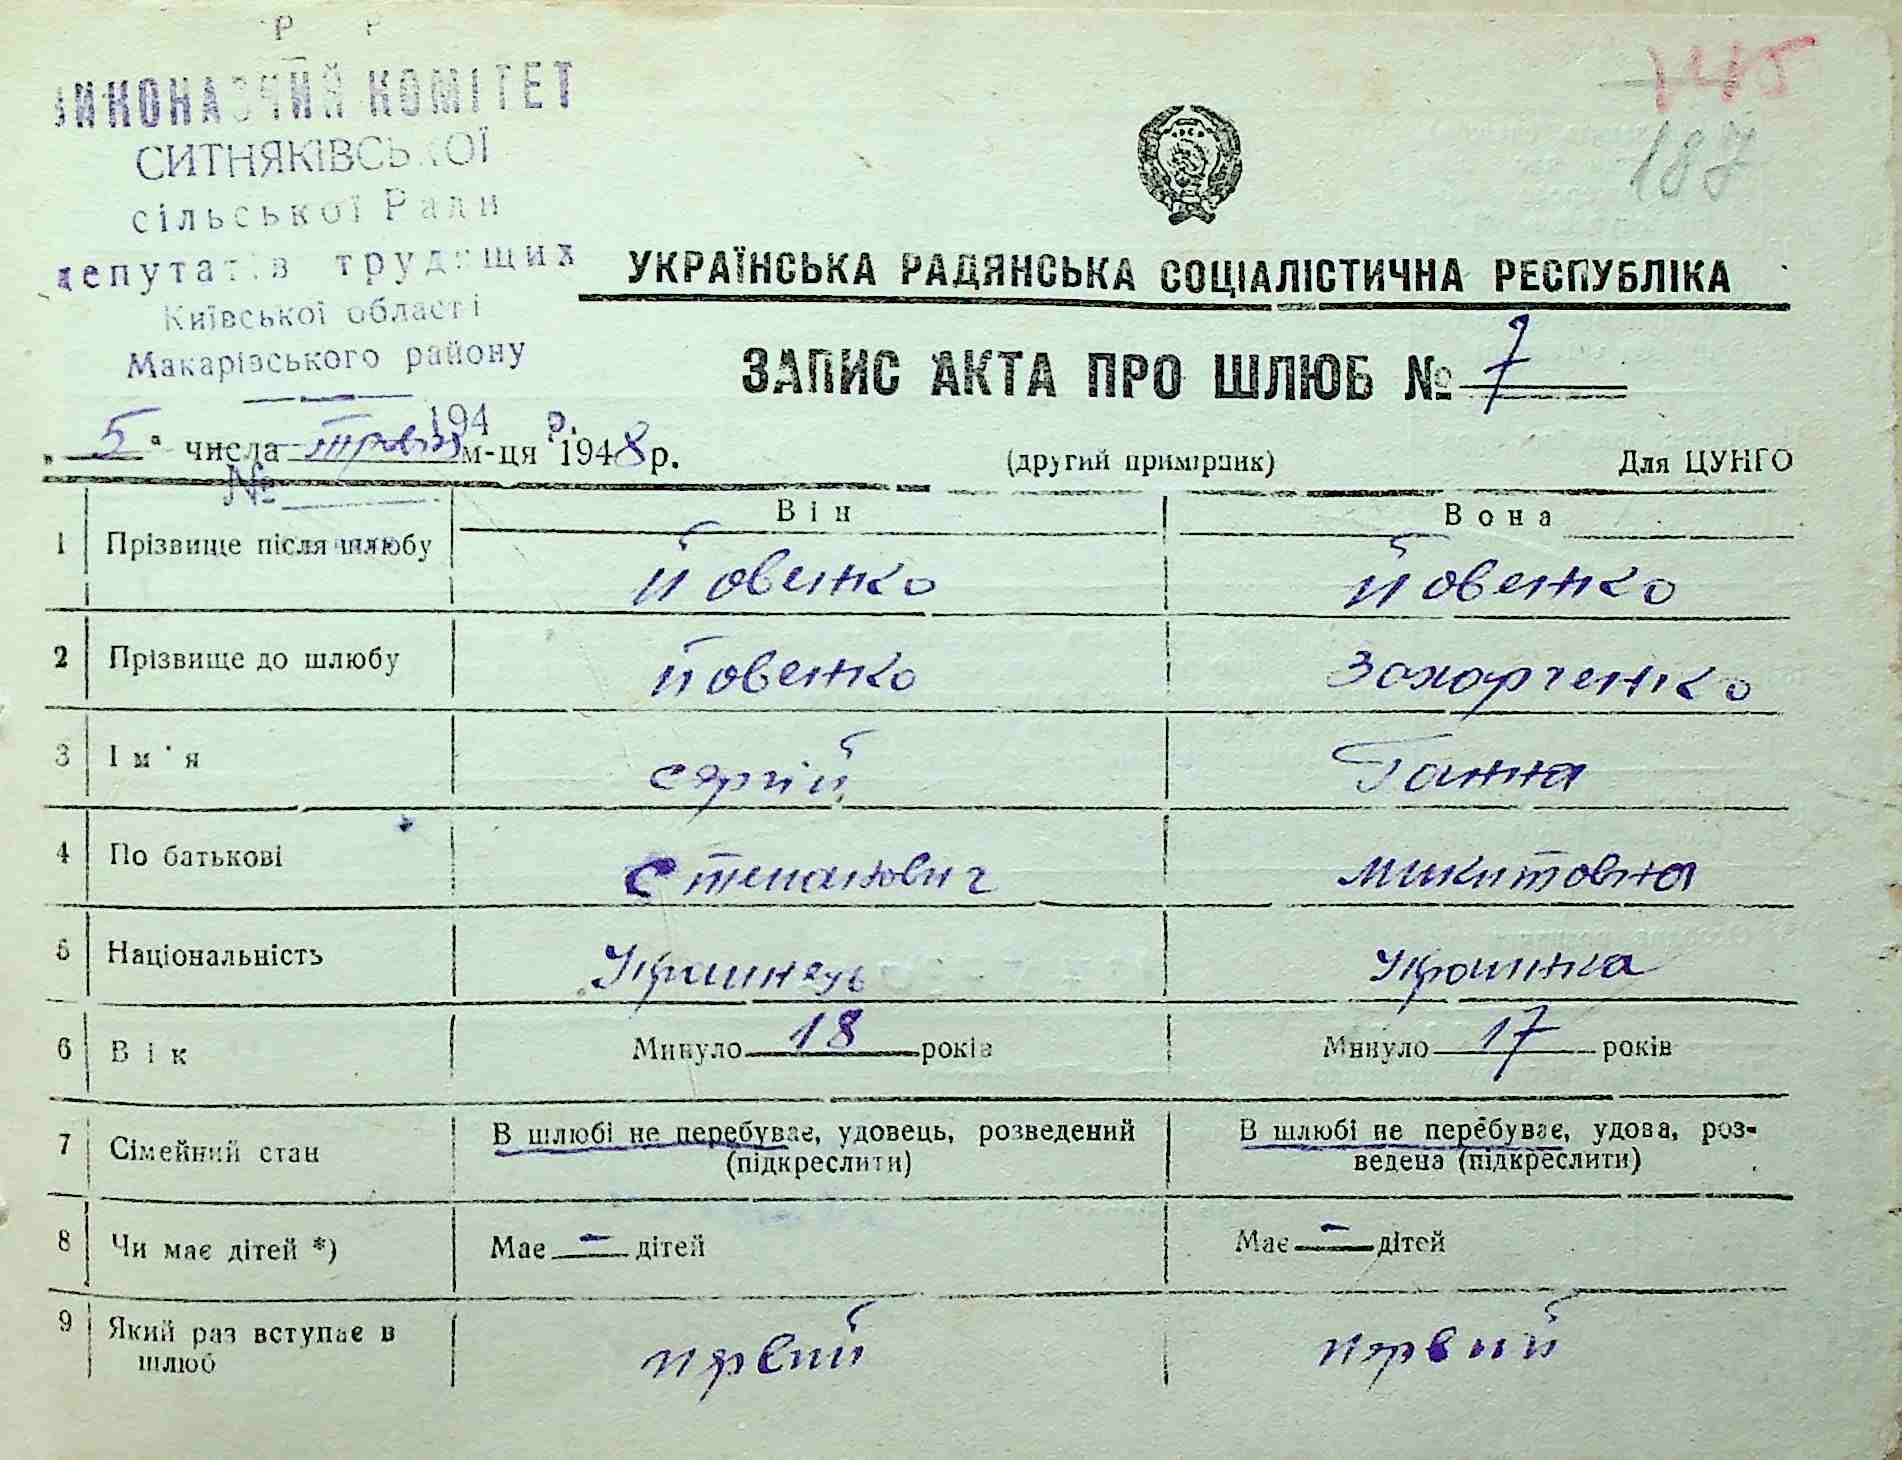 Р Р
ВИКОНАВЧИЙ КОМІТЕТ
СИТНЯКІВСЬКОЇ
сільської Ради
депутатів трудящих
Київської області
Макарівського району
194 р.
№
145
187
УКРАЇНСЬКА РАДЯНСЬКА СОЦІАЛІСТИЧНА РЕСПУБЛІКА
ЗАПИС АКТА ПРО ШЛЮБ № 7
„5" числа травня м-ця 1948 р.
(другий примірник)
Для ЦУНГО
Він Вона
1 Прізвище після шлюбу Йовенко Йовенко
2 Прізвище до шлюбу Йовенко Захарченко
3 Ім'я Сергій Ганна
4 По батькові Степанович Микитовна
5 Національність Украинець Украинка
6 Вік Минуло 18 років Минуло 17 років
7 Сімейний стан В шлюбі не перебуває, удовець, розведений (підкреслити) В шлюбі не перебуває, удова, роз-
ведена (підкреслити)
8 Чи має дітей *) Має — дітей Має — дітей
9 Який раз вступає в шлюб первий первий